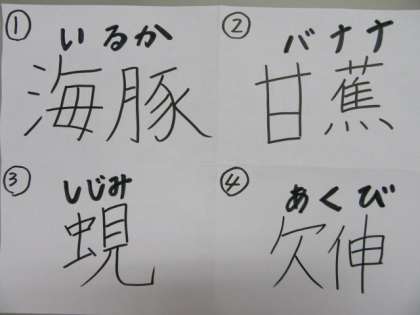 ① いるか
海豚
② バナナ
甘蕉
③ しじみ
蜆
④ あくび
欠伸